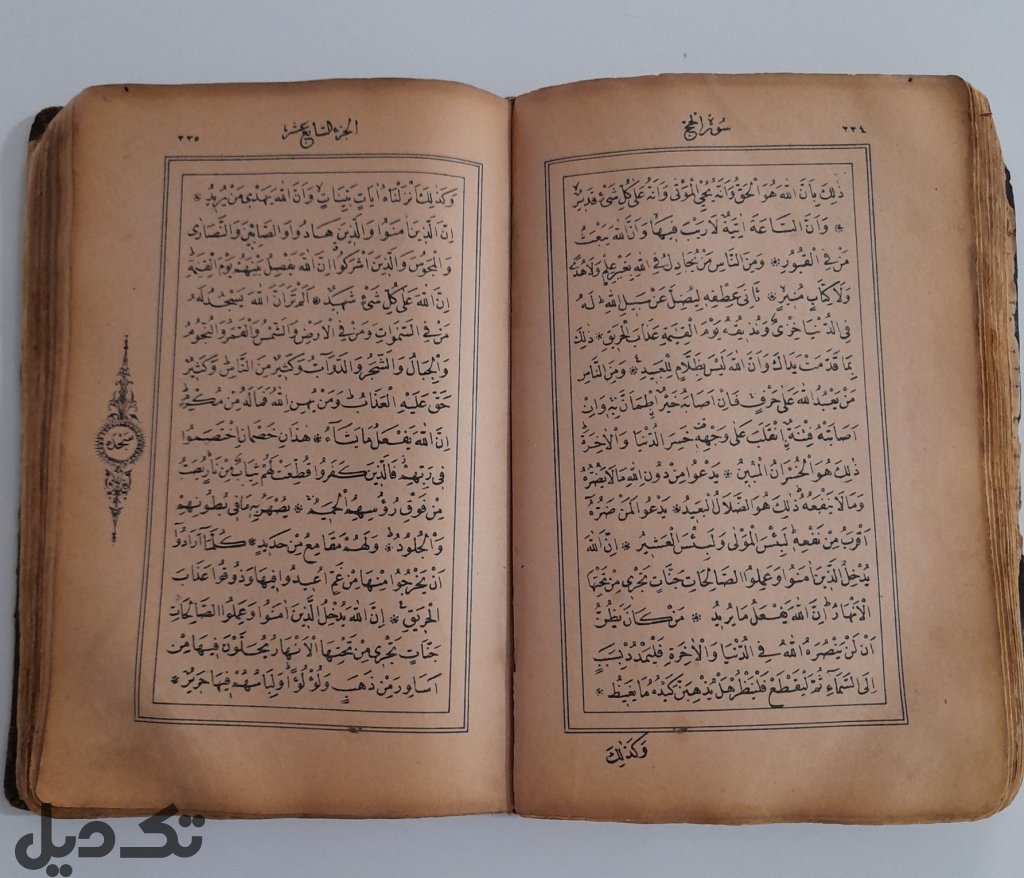 ٣٣٤
سورة الحج
ذٰلِكَ بِاَنَّ اللّٰهَ هُوَ الْحَقُّ وَاَنَّهُ يُحْيِ الْمَوْتٰى وَاَنَّهُ عَلٰى كُلِّ شَىْءٍ قَدِيرٌ
* وَاَنَّ السَّاعَةَ اٰتِيَةٌ لَا رَيْبَ فِيهَا وَاَنَّ اللّٰهَ يَبْعَثُ
مَنْ فِى الْقُبُورِ * وَمِنَ النَّاسِ مَنْ يُجَادِلُ فِى اللّٰهِ بِغَيْرِ عِلْمٍ وَلَا هُدًى
وَلَا كِتَابٍ مُنِيرٍ * ثَانِىَ عِطْفِهِ لِيُضِلَّ عَنْ سَبِيلِ اللّٰهِ لَهُ
فِى الدُّنْيَا خِزْىٌ وَنُذِيقُهُ يَوْمَ الْقِيٰمَةِ عَذَابَ الْحَرِيقِ * ذٰلِكَ
بِمَا قَدَّمَتْ يَدَاكَ وَاَنَّ اللّٰهَ لَيْسَ بِظَلَّامٍ لِلْعَبِيدِ * وَمِنَ النَّاسِ
مَنْ يَعْبُدُ اللّٰهَ عَلٰى حَرْفٍ فَاِنْ اَصَابَهُ خَيْرٌ اطْمَاَنَّ بِهِ وَاِنْ
اَصَابَتْهُ فِتْنَةٌ انْقَلَبَ عَلٰى وَجْهِهِ خَسِرَ الدُّنْيَا وَالْاٰخِرَةَ
ذٰلِكَ هُوَ الْخُسْرَانُ الْمُبِينُ * يَدْعُوا مِنْ دُونِ اللّٰهِ مَا لَا يَضُرُّهُ
وَمَا لَا يَنْفَعُهُ ذٰلِكَ هُوَ الضَّلَالُ الْبَعِيدُ * يَدْعُوا لَمَنْ ضَرُّهُ
اَقْرَبُ مِنْ نَفْعِهِ لَبِئْسَ الْمَوْلٰى وَلَبِئْسَ الْعَشِيرُ * اِنَّ اللّٰهَ
يُدْخِلُ الَّذِينَ اٰمَنُوا وَعَمِلُوا الصَّالِحَاتِ جَنَّاتٍ تَجْرِى مِنْ تَحْتِهَا
الْاَنْهَارُ اِنَّ اللّٰهَ يَفْعَلُ مَا يُرِيدُ * مَنْ كَانَ يَظُنُّ
اَنْ لَنْ يَنْصُرَهُ اللّٰهُ فِى الدُّنْيَا وَالْاٰخِرَةِ فَلْيَمْدُدْ بِسَبَبٍ
اِلَى السَّمَاءِ ثُمَّ لْيَقْطَعْ فَلْيَنْظُرْ هَلْ يُذْهِبَنَّ كَيْدُهُ مَا يَغِيظُ *
وَكَذٰلِكَ
الجزء السابع عشر
٣٣٥
وَكَذٰلِكَ اَنْزَلْنَاهُ اٰيَاتٍ بَيِّنَاتٍ وَاَنَّ اللّٰهَ يَهْدِى مَنْ يُرِيدُ *
اِنَّ الَّذِينَ اٰمَنُوا وَالَّذِينَ هَادُوا وَالصَّابِئِينَ وَالنَّصَارٰى
وَالْمَجُوسَ وَالَّذِينَ اَشْرَكُوا اِنَّ اللّٰهَ يَفْصِلُ بَيْنَهُمْ يَوْمَ الْقِيٰمَةِ
اِنَّ اللّٰهَ عَلٰى كُلِّ شَىْءٍ شَهِيدٌ * اَلَمْ تَرَ اَنَّ اللّٰهَ يَسْجُدُ لَهُ
مَنْ فِى السَّمٰوَاتِ وَمَنْ فِى الْاَرْضِ وَالشَّمْسُ وَالْقَمَرُ وَالنُّجُومُ
وَالْجِبَالُ وَالشَّجَرُ وَالدَّوَآبُّ وَكَثِيرٌ مِنَ النَّاسِ وَكَثِيرٌ
حَقَّ عَلَيْهِ الْعَذَابُ وَمَنْ يُهِنِ اللّٰهُ فَمَا لَهُ مِنْ مُكْرِمٍ
اِنَّ اللّٰهَ يَفْعَلُ مَا يَشَاءُ * هٰذَانِ خَصْمَانِ اخْتَصَمُوا
فِى رَبِّهِمْ فَالَّذِينَ كَفَرُوا قُطِّعَتْ لَهُمْ ثِيَابٌ مِنْ نَارٍ يُصَبُّ
مِنْ فَوْقِ رُؤُسِهِمُ الْحَمِيمُ * يُصْهَرُ بِهِ مَا فِى بُطُونِهِمْ
وَالْجُلُودُ * وَلَهُمْ مَقَامِعُ مِنْ حَدِيدٍ * كُلَّمَا اَرَادُوا
اَنْ يَخْرُجُوا مِنْهَا مِنْ غَمٍّ اُعِيدُوا فِيهَا وَذُوقُوا عَذَابَ
الْحَرِيقِ * اِنَّ اللّٰهَ يُدْخِلُ الَّذِينَ اٰمَنُوا وَعَمِلُوا الصَّالِحَاتِ
جَنَّاتٍ تَجْرِى مِنْ تَحْتِهَا الْاَنْهَارُ يُحَلَّوْنَ فِيهَا مِنْ
اَسَاوِرَ مِنْ ذَهَبٍ وَلُؤْلُؤًا وَلِبَاسُهُمْ فِيهَا حَرِيرٌ *
سجده
تک دیل